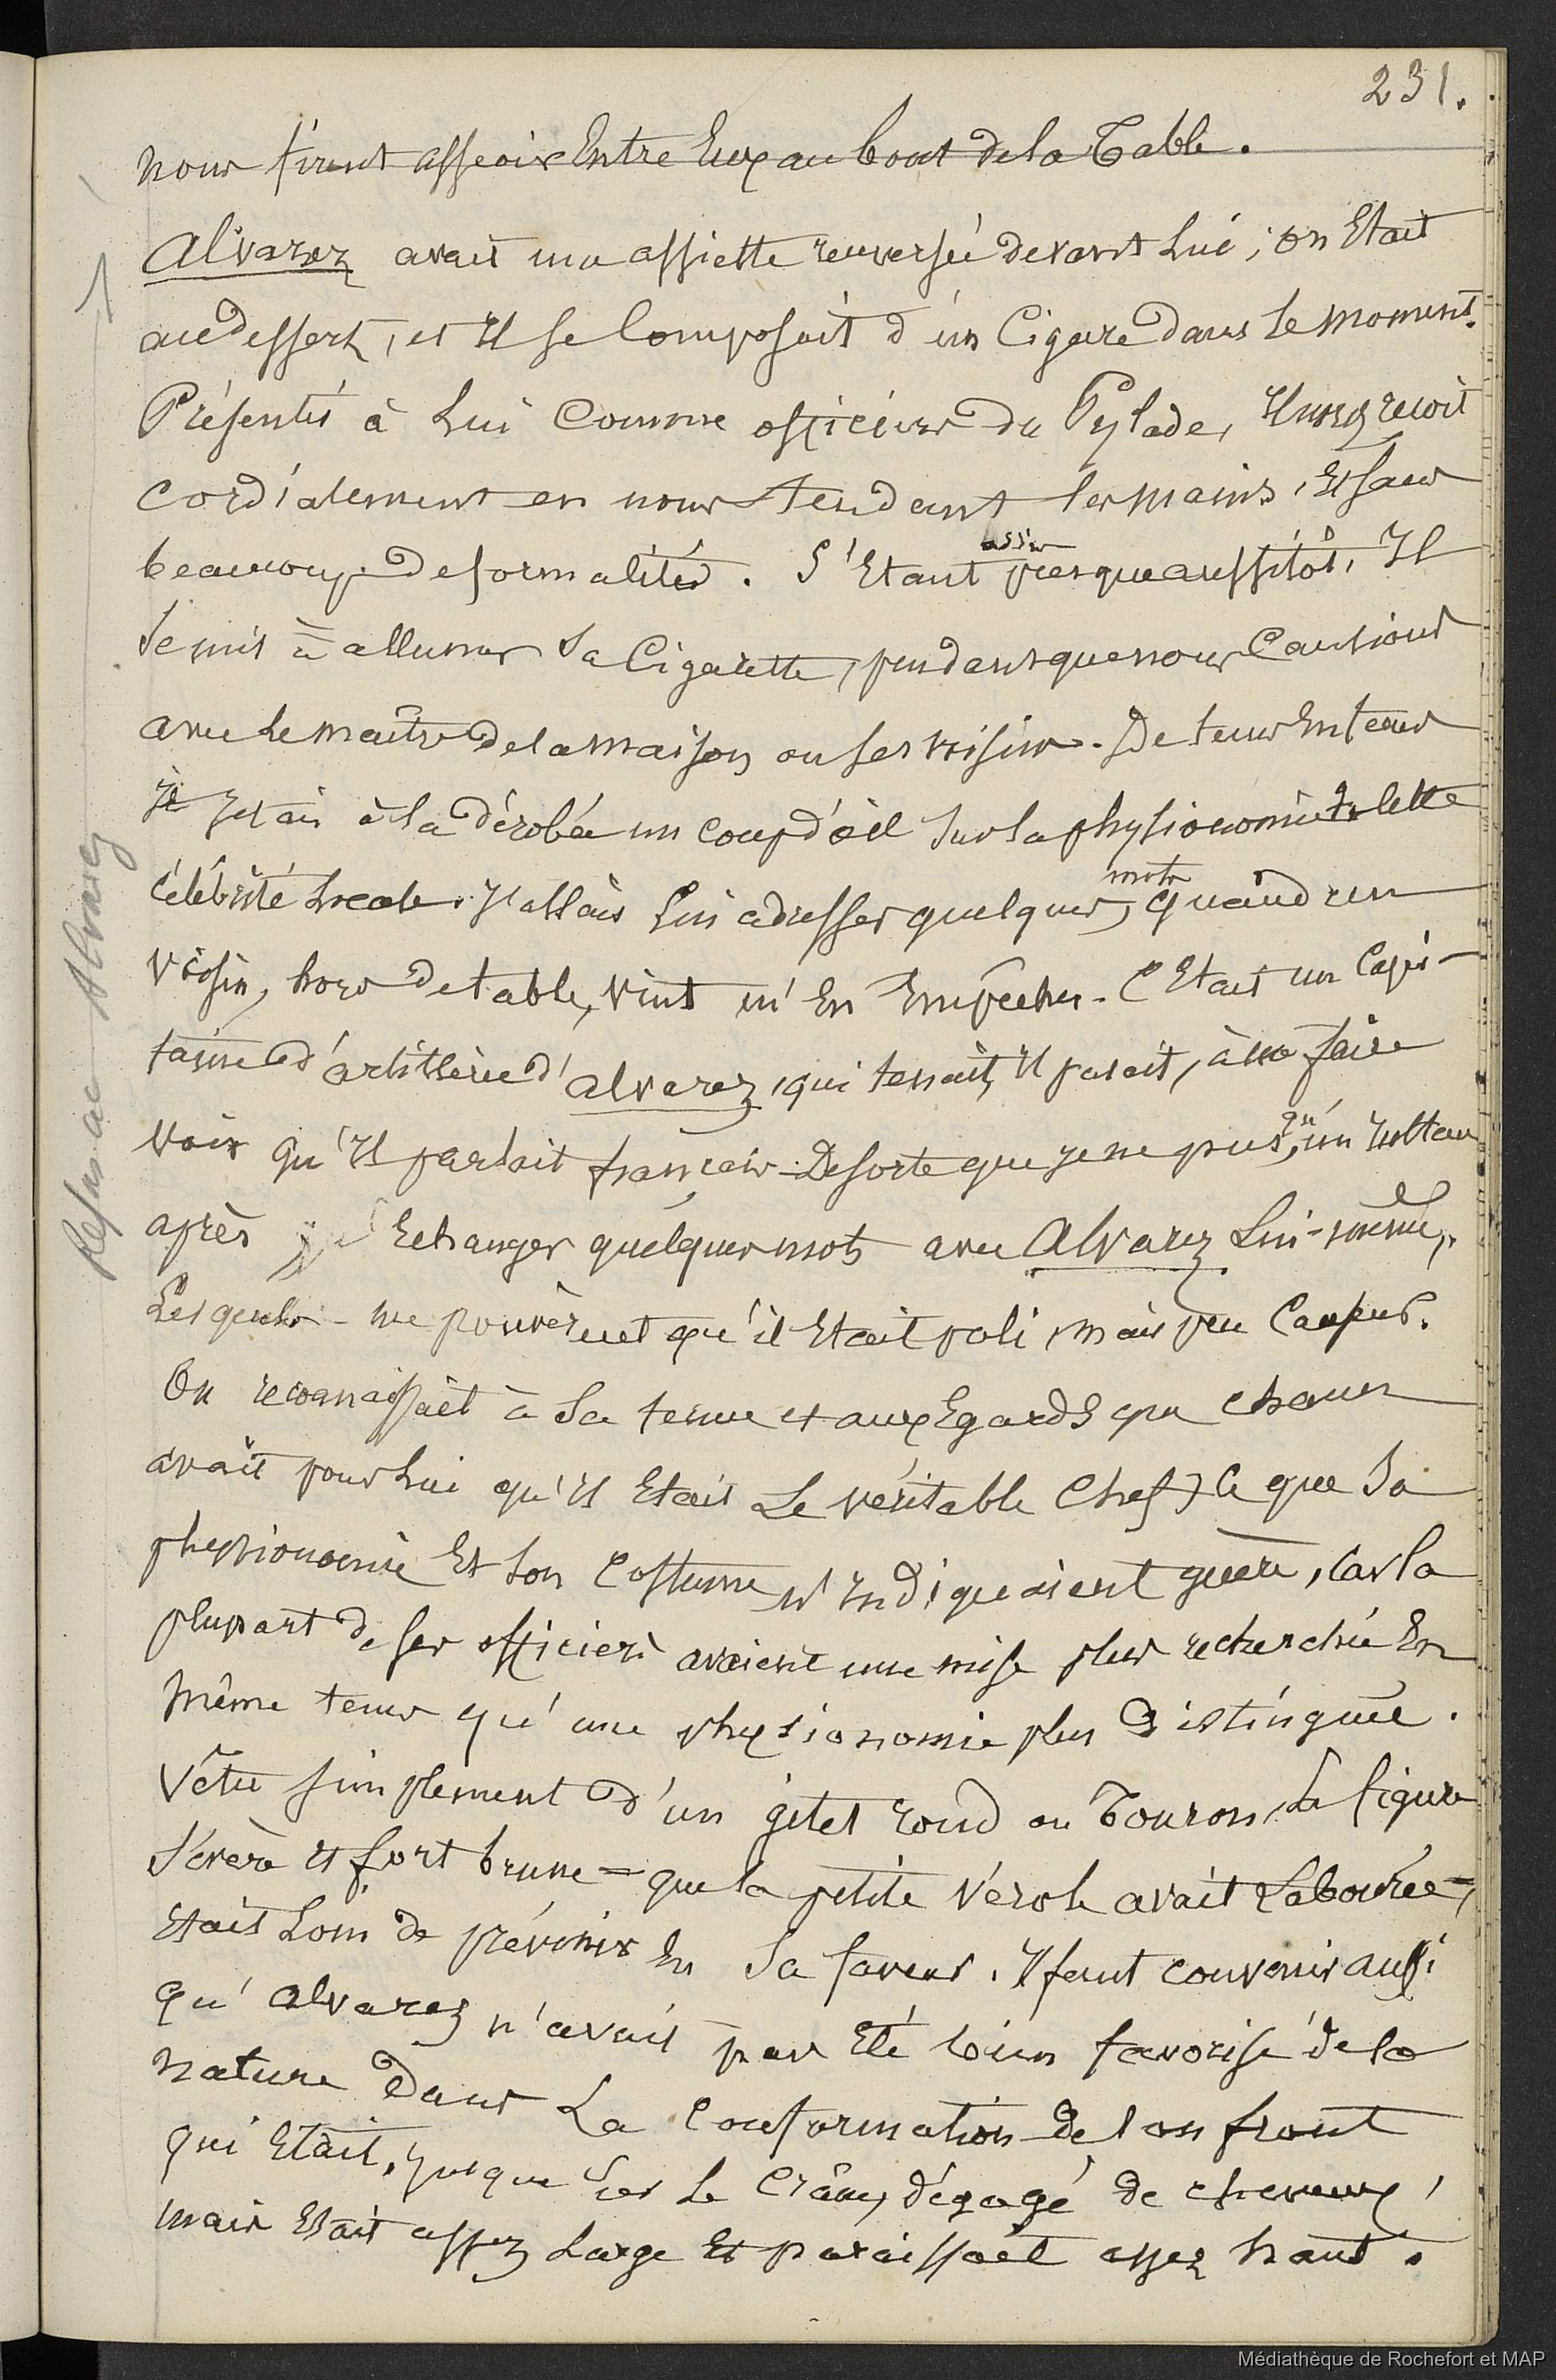 231.
nous firent asseoir Entre Eux au bout de la Table.
Alvarez avait une assiette renversée devant Lui, on Etait
au dessert, et Il se Composait d'un Cigare dans le moment.
Présentés à Lui Comme officiers du Pylade, Il nous reçoit
Cordialement en nous tendant les mains, Et sans
beaucoup de formalités. S'Etant assis presque aussitôt, Il
se mit à allumer Sa Cigarette, pendant que nous Causions
avec Le maître de la maison ou ses voisins. De tems En tems
je jetais à la dérobée un coup d'oeil sur la physionomie de cette
Célébrité Locale. J'allais Lui adresser quelques mots, quand un
voisin, hors de table, vint m'En Empêcher. C'Etait un Capi-
taine d'artillerie d'Alvarez, qui tenait, Il parait, à me faire
voir qu'Il parlait français. De sorte que je ne pus, qu'un Instan
après Echanger quelques mots avec Alvarez Lui-même,
Lesquels me prouvèrent qu'il Etait poli, mais peu
On reconnaissait à Sa tenue et aux Egards que chacun
avait pour Lui qu'Il Etait Le véritable Chef, Ce que Sa
physionomie Et Son Costume n'Indiquaient guère, Car la
plupart de ses officiers avaient une mise plus recherchée En
même tems qu'une physionomie plus Distinguée.
Vêtu simplement d'un gilet rond ou Touron, La figure
Sévère et fort brune = que la petite vérole avait Labourée =,
Etait Loin de prévenir En Sa faveur. Il faut convenir aussi
qu'Alvarez n'avait pas Eté bien favorisé de la
nature Dans La Conformation de son front
qui Etait, jusque sur Le Crâne, dégagé de cheveux,
mais Etait assez Large Et paraissait assez haut.
Médiathèque de Rochefort et MAP